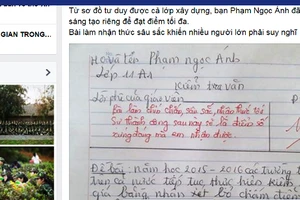 Từ sơ đồ tư duy được cả lớp xây dựng, bạn Phạm Ngọc Ánh đã
sáng tạo riêng để đạt điểm tối đa.
Bài làm nhận thức sâu sắc khiến nhiều người lớn phải suy nghĩ
GIAN TRONG...
Họ và tên Phạm Ngọc Ánh
Lớp 11 A1
Kiểm tra văn
Lời phê của giáo viên
Bài làm sâu sắc, nhận thức
Sự thành công sau này sẽ là điểm số
xứng đáng mà em nhận được.
Đề bài: năm học 2015 - 2016 các trường
trên cả nước tiếp tục thực hiện
giá bằng nhận xét bỏ chấm điểm